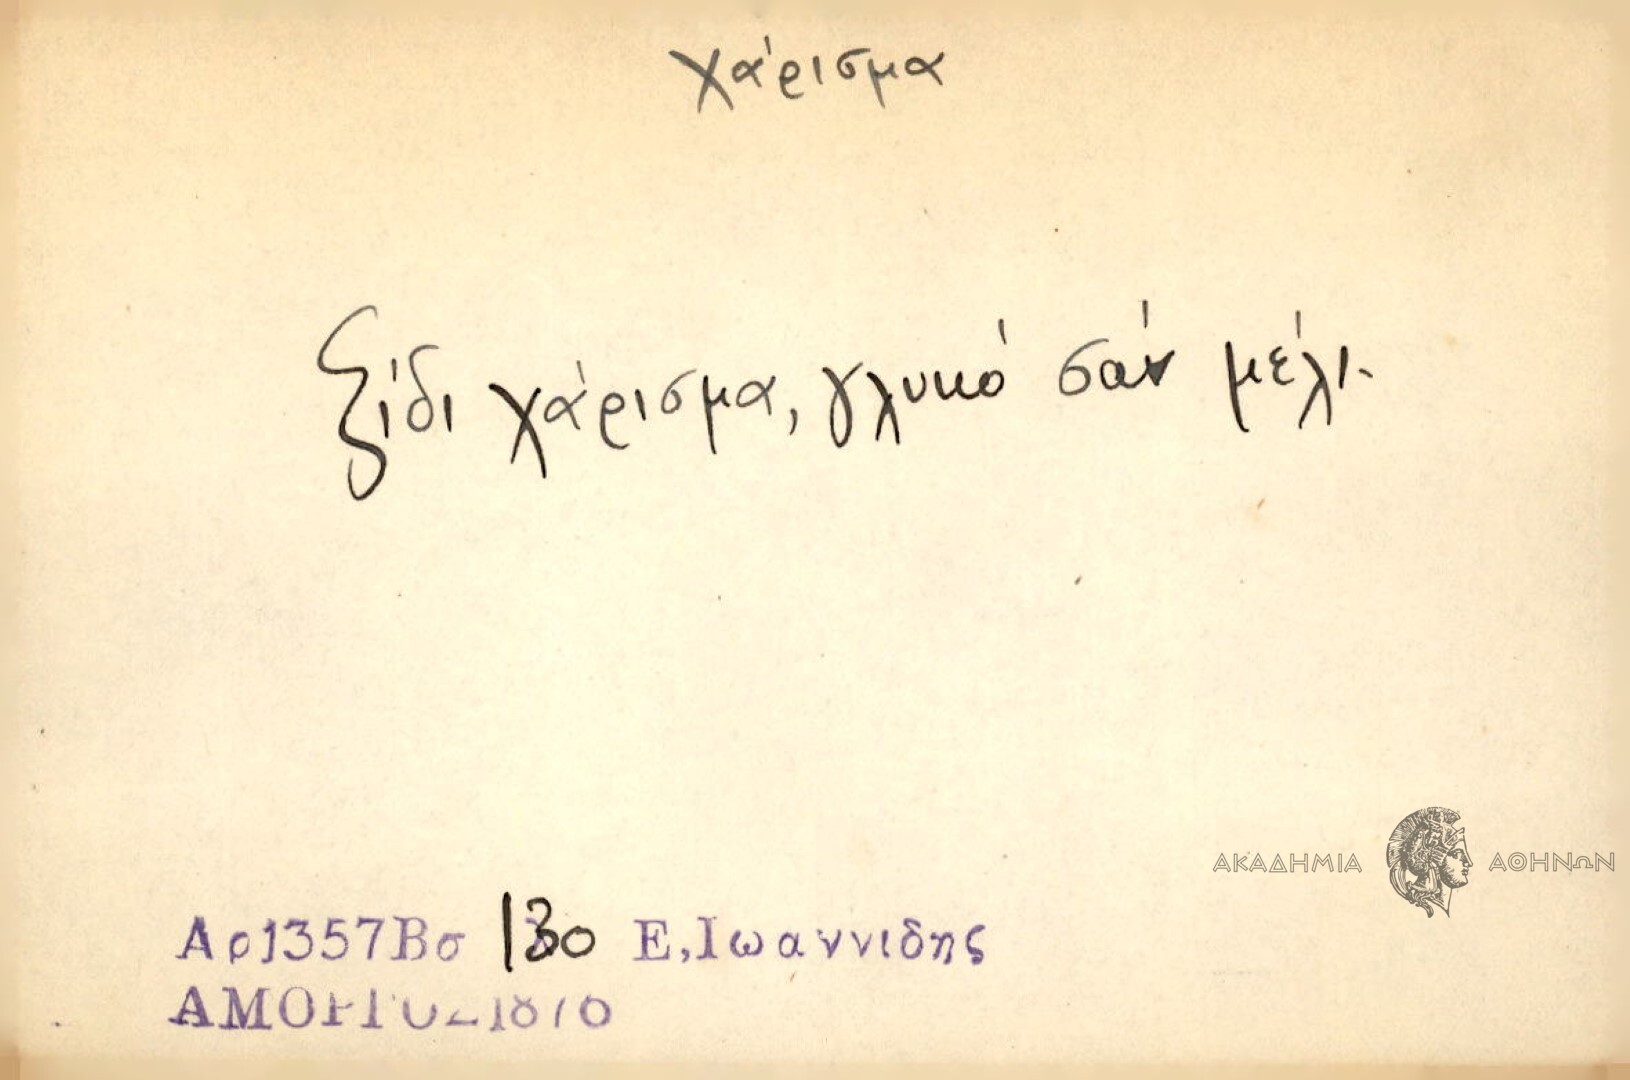 χάρισμα
ξίδι χάρισμα, γλυκό σάν μέλι.
ΑΚΑΔΗΜΙΑ ΑΘΗΝΩΝ
Αρ1357Βσ 130 Ε,Ιωαννιδης
ΑΜΟΡΓΟΣ1876